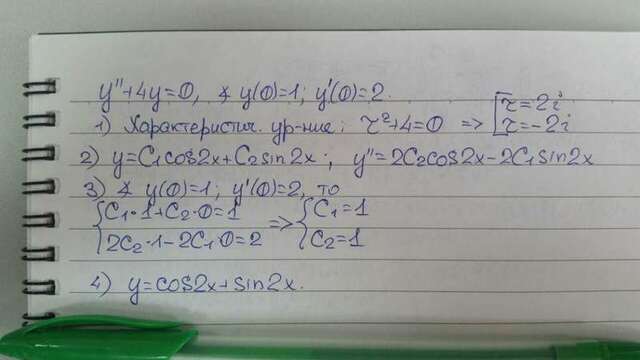 y''+4y=0, ∢ y(0)=1; y'(0)=2.
1) Характеристич. ур-ние: r²+4=0 => [r=2i
r=-2i
2) y=C₁cos2x+C₂sin2x; y''=2C₂cos2x-2C₁sin2x
3) ∢ y(0)=1; y'(0)=2, то
{C₁·1+C₂·0=1 => {C₁=1
2C₂·1-2C₁·0=2 C₂=1
4) y=cos2x+sin2x.